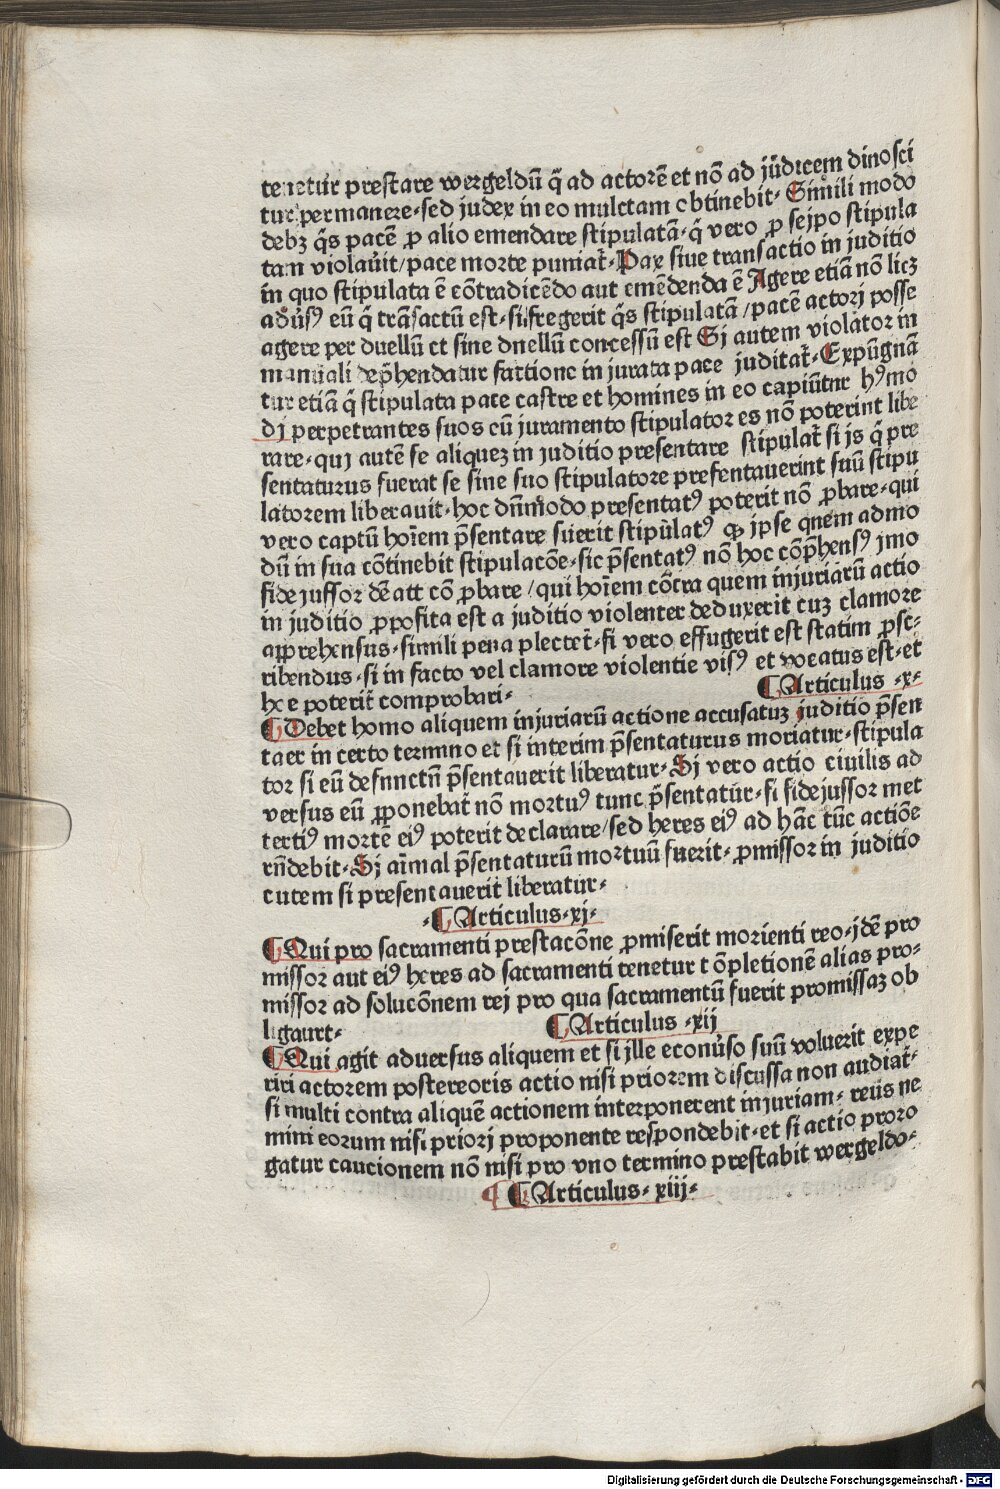 tenetur prestare wergeldū q̄ ad actorē et nō ad jūdicem dinosci
tur permanere, sed judex in eo mulctam obtinebit, Simili modo
debꝫ q̄s pacē ꝓ alio emendare stipulatā, q̄ vero ꝓ sejpo stipula
tam violaūit/pace morte puniat᷑, Pax siue transactio in juditio
in quo stipulata ē cōtradicēdo aut emēdenda ē Agere etiā nō licꝫ
adūsꝰ eū q̄ trāsactū est, si fregerit q̄s stipulatā/pacē actorj posse
agere per duellū et sine dnellū concessū est Sj autem violator in
manuali dep̄hendatur factione in jurata pace juditat᷑, Expūgnā
tur etiā q̄ stipulata pace castre et homines in eo capiūtur hꝰmo
dj perpetrantes suos cū juramento stipulatores nō poterint libe
rare, quj autē se aliquez in juditio presentare stipulat᷑ si js q̄ pre
sentaturus fuerat se sine suo stipulatore presentauerint suū stipu
latorem liberauit, hoc dn̄mōdo presentatꝰ poterit nō ꝓbare, qui
vero captū hoīem p̄sentare suerit stipūlatꝰ ꝙ jpse qnem admo
dū in sua cōtinebit stipulacōe, sic p̄sentatꝰ nō hoc cōp̄hensꝰ jmo
fidejussor dē att cō ꝓbare/qui hoīem cōtra quem injuriarū actio
in juditio ꝓposita est a juditio violenter deduxerit cuz clamore
apprehensus, simili pena plectet᷑, si vero effugerit est statim ꝓsc⸗
ribendus, si in facto vel clamore violentie visꝰ et vocatus est, et
hc e poterit᷑ comprobari,
¶Articulus ,x,
¶Debet homo aliquem injuriarū actione accusatuz juditio p̄sen
taer in certo termino et si interim p̄sentaturus moriatur, stipula
tor si eū defnnctū p̄sentauerit liberatur, Sj vero actio ciuilis ad
versus eū ꝓponebat᷑ nō mortuꝰ tunc p̄sentatūr, si fidejussor met
tertiꝰ mortē eiꝰ poterit declarare/sed heres eiꝰ ad hāc tūc actiōe
rn̄debit, Sj aīmal p̄sentaturū mortuū fuerit, ꝓmissor in juditio
cutem si presentauerit liberatur,
,¶Articulus,xj,
¶Qui pro sacramenti prestacōne ꝓmiserit morienti reo, jdē pro
missor aut eiꝰ heres ad sacramenti tenetur cōpletionē alias pro⸗
missor ad solucōnem rej pro qua sacramentū fuerit promissaꝫ ob
ligaurt,
¶Articulus ,xij
¶Qui agit adversus aliquem et si jlle econūso suū voluerit expe
riri actorem postereoris actio nisi priorem discussa non audiat᷑,
si multi contra aliquē actionem interponerent injuriam, reus ne
mini eorum nisi priorj proponente respondebit, et si actio proro
gatur caucionem nō nisi pro vno termino prestabit wergeldo,
¶ ¶Articulus, xiij,
Digitalisierung gefördert durch die Deutsche Forschungsgemeinschaft - DFG